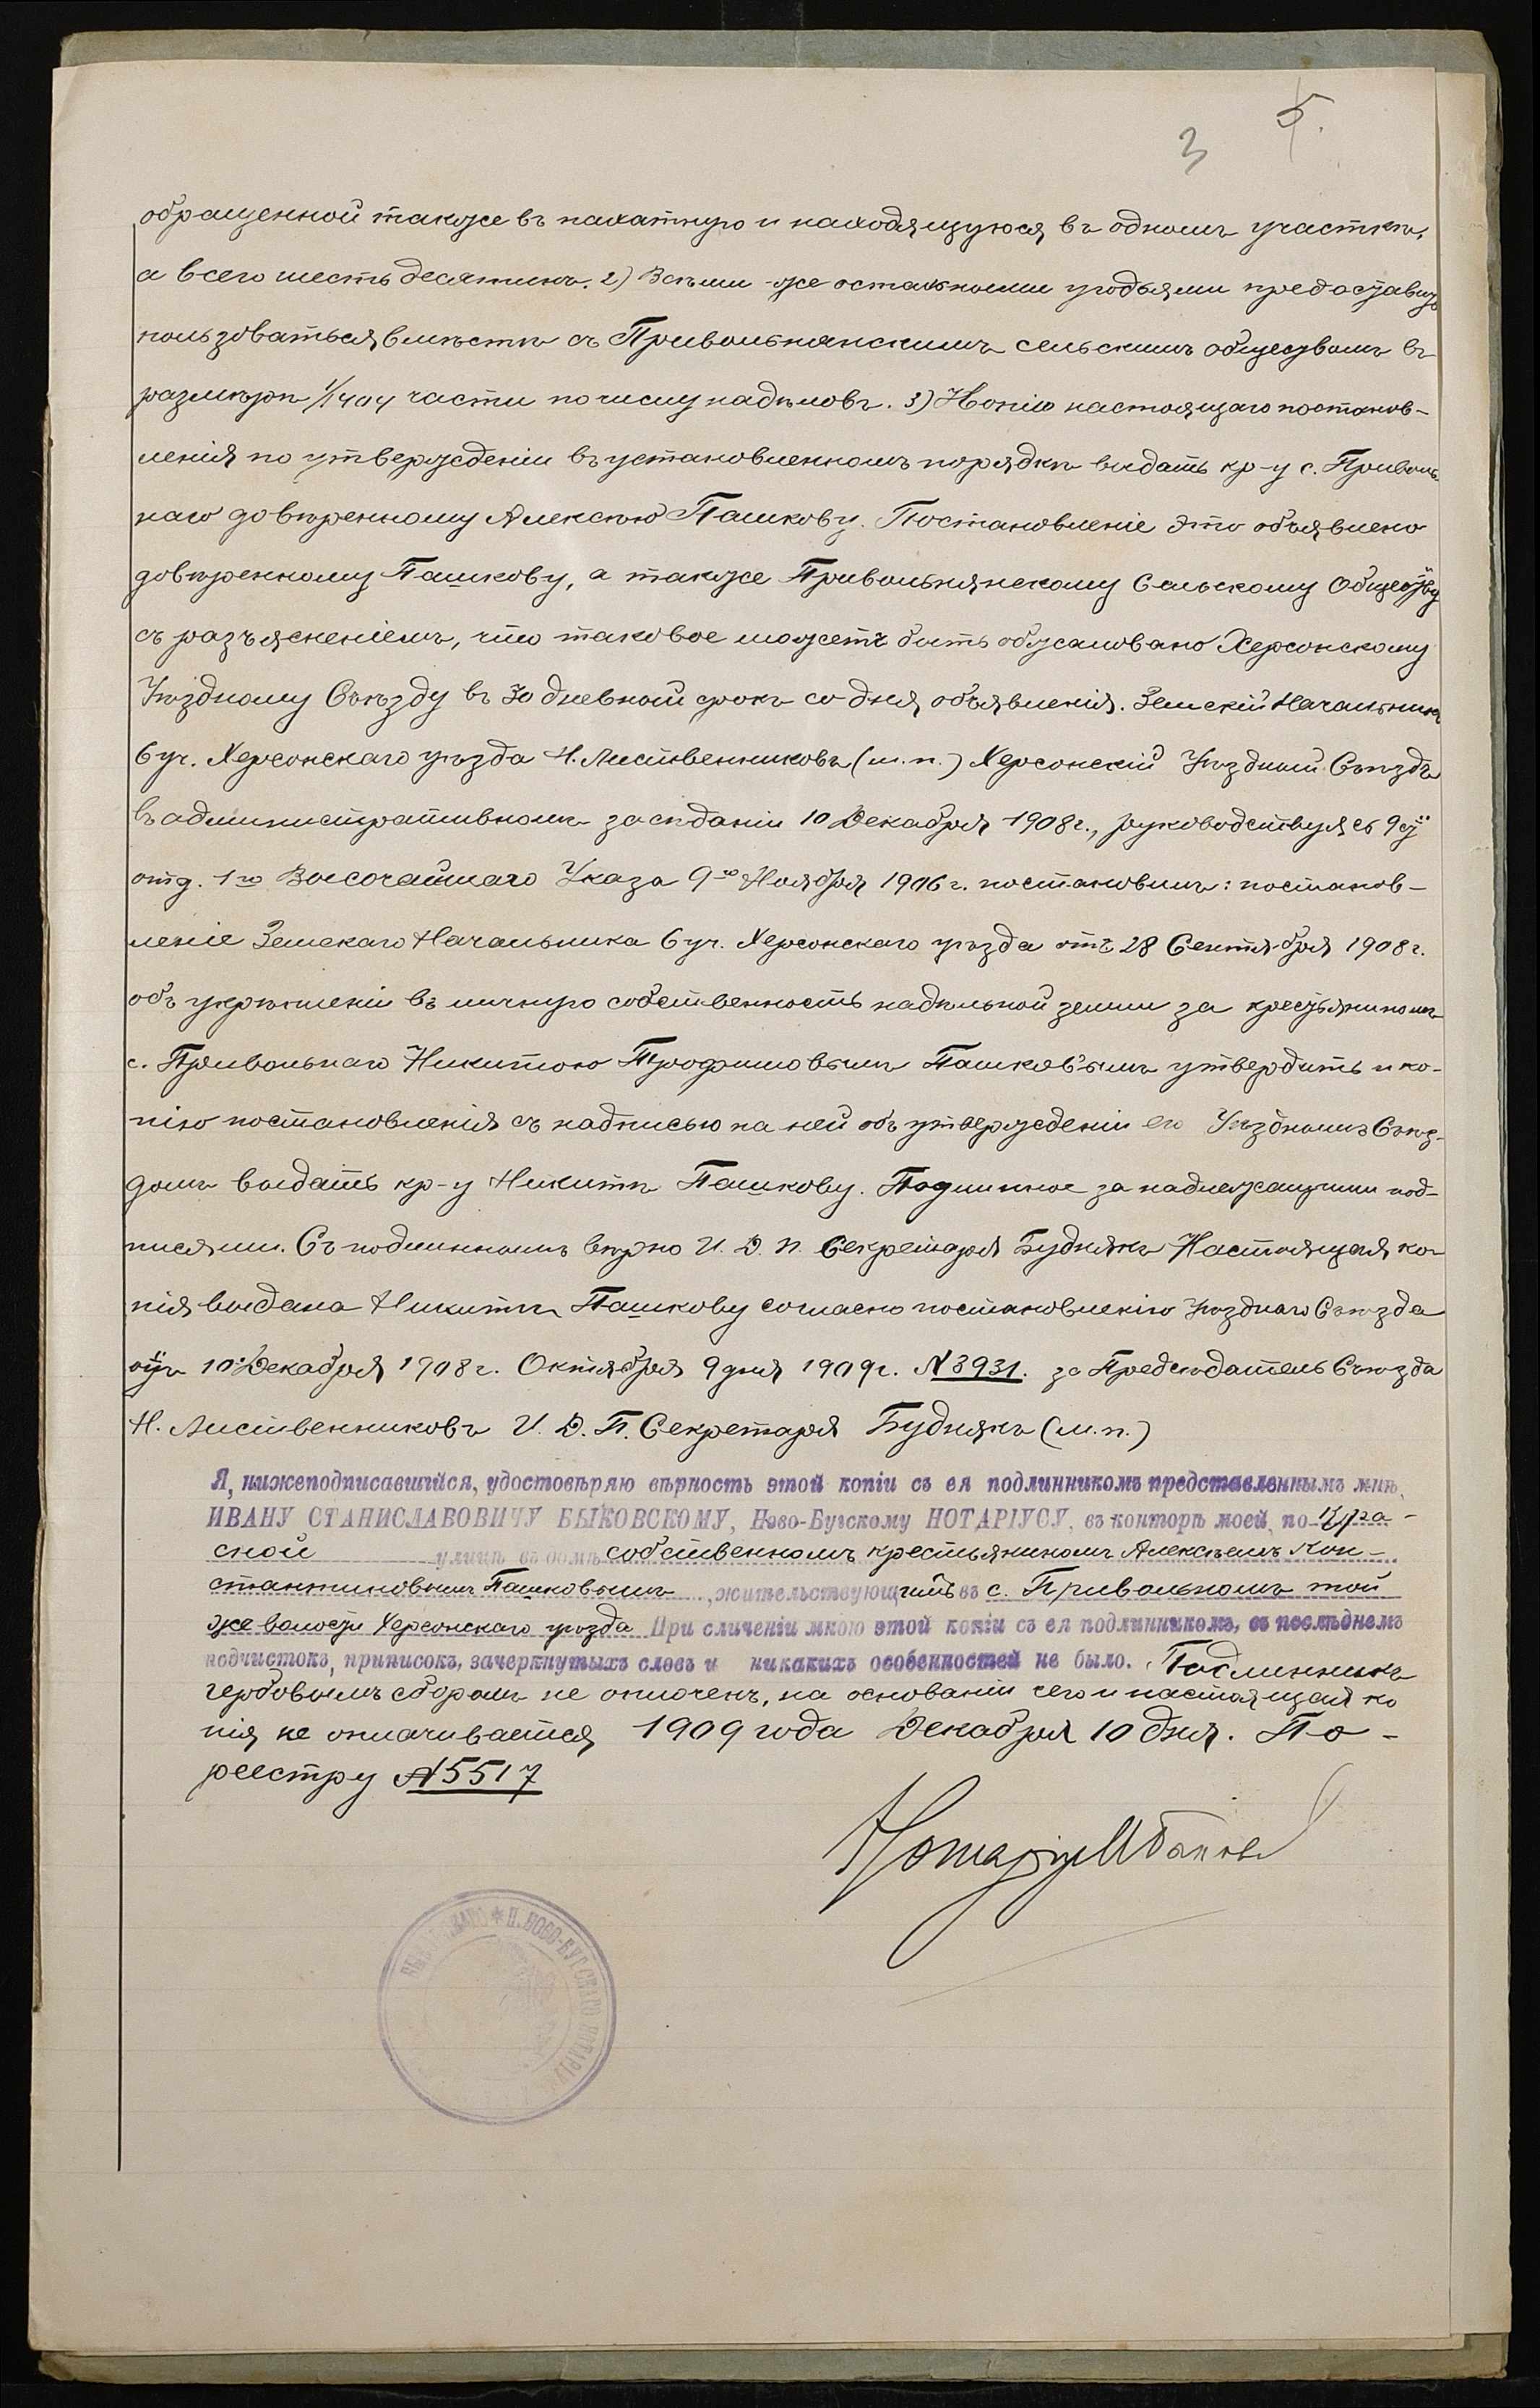 3 5.
обращенной также въ пахатную и находящуюся въ одномъ участкѣ,
а всего шесть десятинъ. 2) Всѣми же остальными угодьями предоставить
пользоваться вмѣстѣ съ Привольнянскимъ сельскимъ обществомъ въ
размѣрѣ 1/1404 части по числу надѣловъ. 3) Копію настоящаго постанов-
ленія по утвержденіи въ установленномъ порядкѣ выдать кр-у с. Приволь-
наго довѣренному Алексѣю Пашкову. Постановленіе это объявлено
довѣренному Пашкову, а также Привольнянскому Сельскому Обществу
съ разъясненіемъ, что таковое можетъ быть обжаловано Херсонскому
Уѣздному Съѣзду въ 30 дневный срокъ со дня объявленія. Земскій Начальникъ
6 уч. Херсонскаго уѣзда Н. Лиственниковъ (м.п.) Херсонскій Уѣздный Съѣздъ
въ административномъ засѣданіи 10 Декабря 1908 г., руководствуясь 9 ст
отд. 1го Высочайшаго Указа 9го Ноября 1906 г. постановилъ: постанов-
леніе Земскаго Начальника 6 уч. Херсонскаго уѣзда отъ 28 Сентября 1908 г.
объ укрѣпленіи въ личную собственность надѣльной земли за крестьяниномъ
с. Привольнаго Никитою Трофимовымъ Пашковымъ утвердить и ко-
пію постановленія съ надписью на ней объ утвержденіи его Уѣзднымъ Съѣз-
домъ выдать кр-у Никитѣ Пашкову. Подлинное за надлежащими под-
писями. Съ подлиннымъ вѣрно И. Д. П. Секретаря Буднякъ Настоящая ко-
пія выдана Никитѣ Пашкову согласно постановленію Уѣзднаго Съѣзда
отъ 10 Декабря 1908 г. Октября 9 дня 1909 г. № 3931. за Предсѣдатель Съѣзда
Н. Лиственниковъ И. Д. П. Секретаря Буднякъ (м.п.)
Я, нижеподписавшійся, удостовѣряю вѣрность этой копіи съ ея подлинникомъ представленнымъ мнѣ,
ИВАНУ СТАНИСЛАВОВИЧУ БЫКОВСКОМУ, Ново-Бугскому НОТАРІУСУ, въ конторѣ моей, по
сной улицѣ въ домѣ собственномъ крестьяниномъ Алексѣемъ Кон-
стантиновымъ Пашковымъ, жительствующимъ въ с. Привольномъ той
же волости Херсонскаго уѣзда При сличеніи мною этой копіи съ ея подлинникомъ, въ послѣднемъ
подчистокъ, приписокъ, зачеркнутыхъ словъ и никакихъ особенностей не было. Подлинникъ
гербовымъ сборомъ не оплоченъ, на основаніи чего и настоящая ко
пія не оплачивается 1909 года Декабря 10 дня. По-
реестру № 5517
Нотаріусъ
Н. НОВО-БУГСКАГО НОТАРІУ